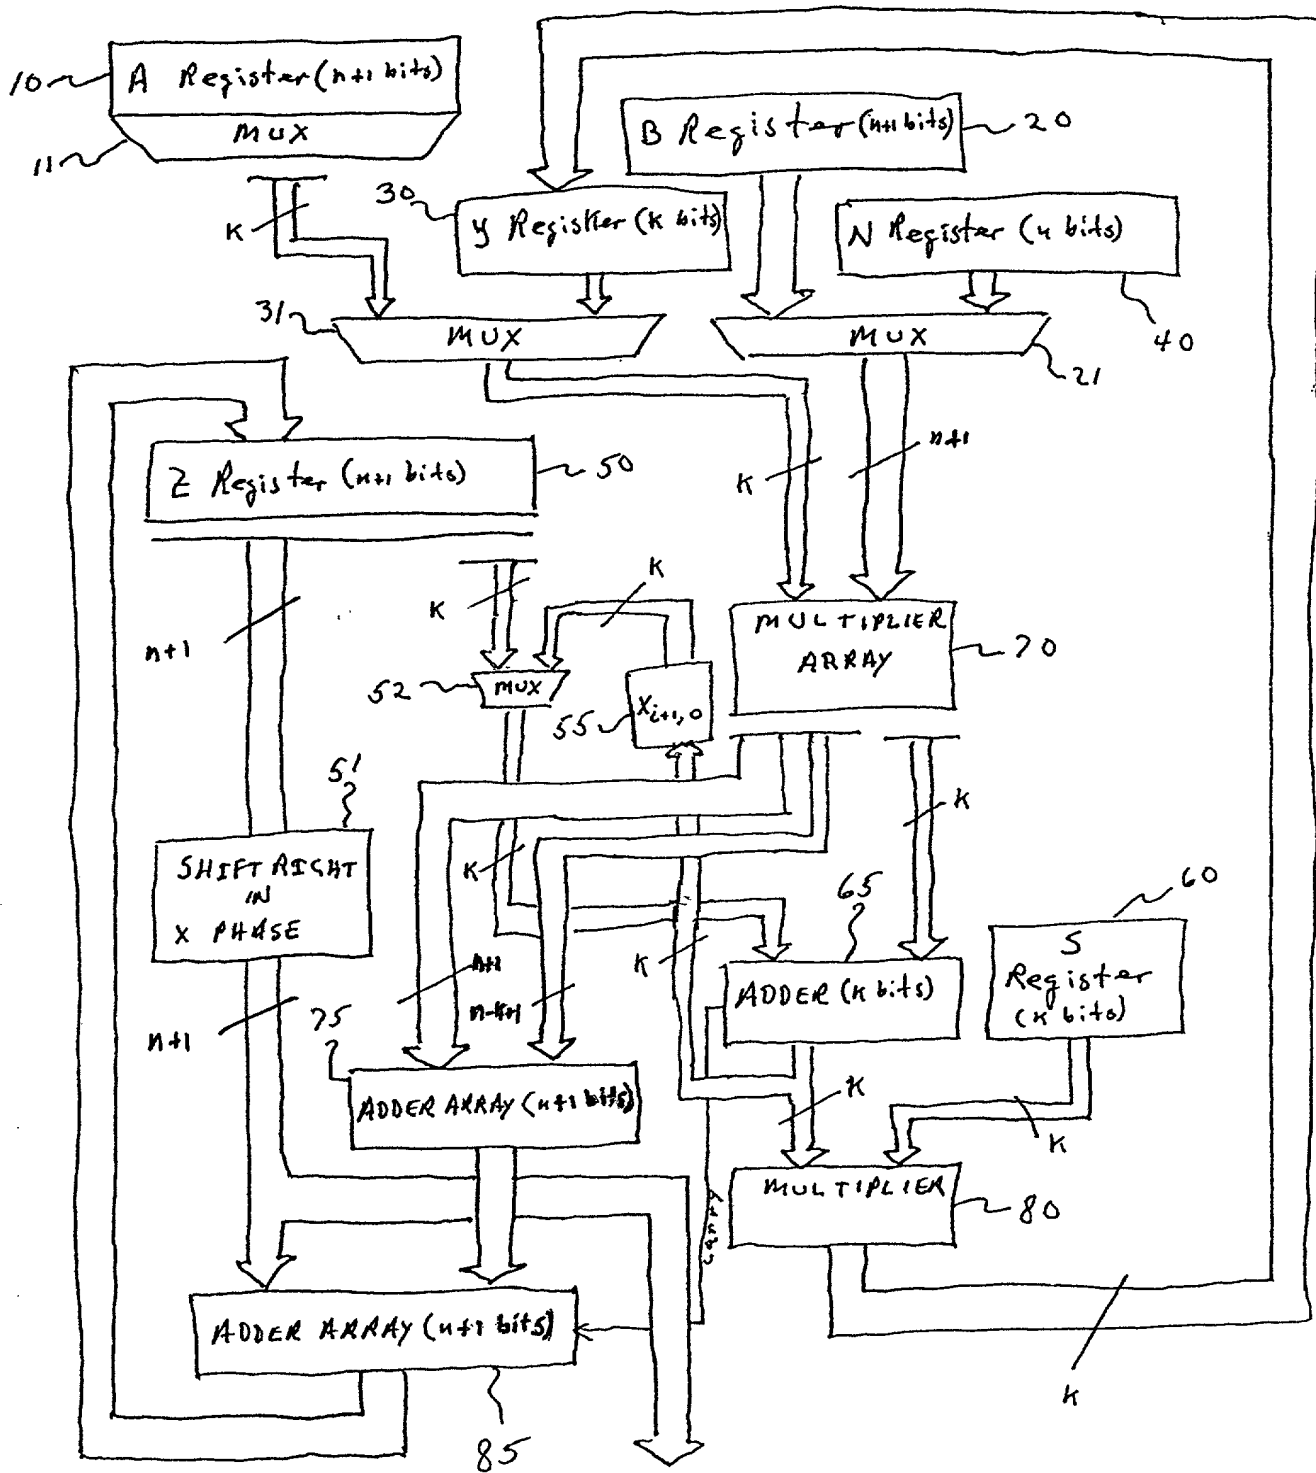 10
A Register (n+1 bits)
MUX
11
B Register (n+1 bits)
20
30
Y Register (k bits)
N Register (n bits)
40
K
31
MUX
MUX
21
Z Register (n+1 bits)
50
K
n+1
K
K
n+1
MULTIPLIER
ARRAY
70
52
MUX
55
X i+1,0
51
SHIFT RIGHT
IN
X PHASE
K
K
65
60
n+1
n-k+1
K
ADDER (k bits)
S
Register
(k bits)
n+1
75
ADDER ARRAY (n+1 bits)
K
K
MULTIPLIER
80
carry
ADDER ARRAY (n+1 bits)
85
K